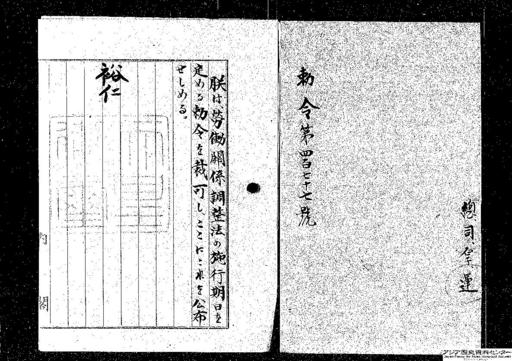 勅令第四百七十七號
總司令連
朕は、勞働關係調整法の施行期日を
定める勅令を裁可し、ここにこれを公布
せしめる。
裕仁
内閣
アジア歴史資料センター